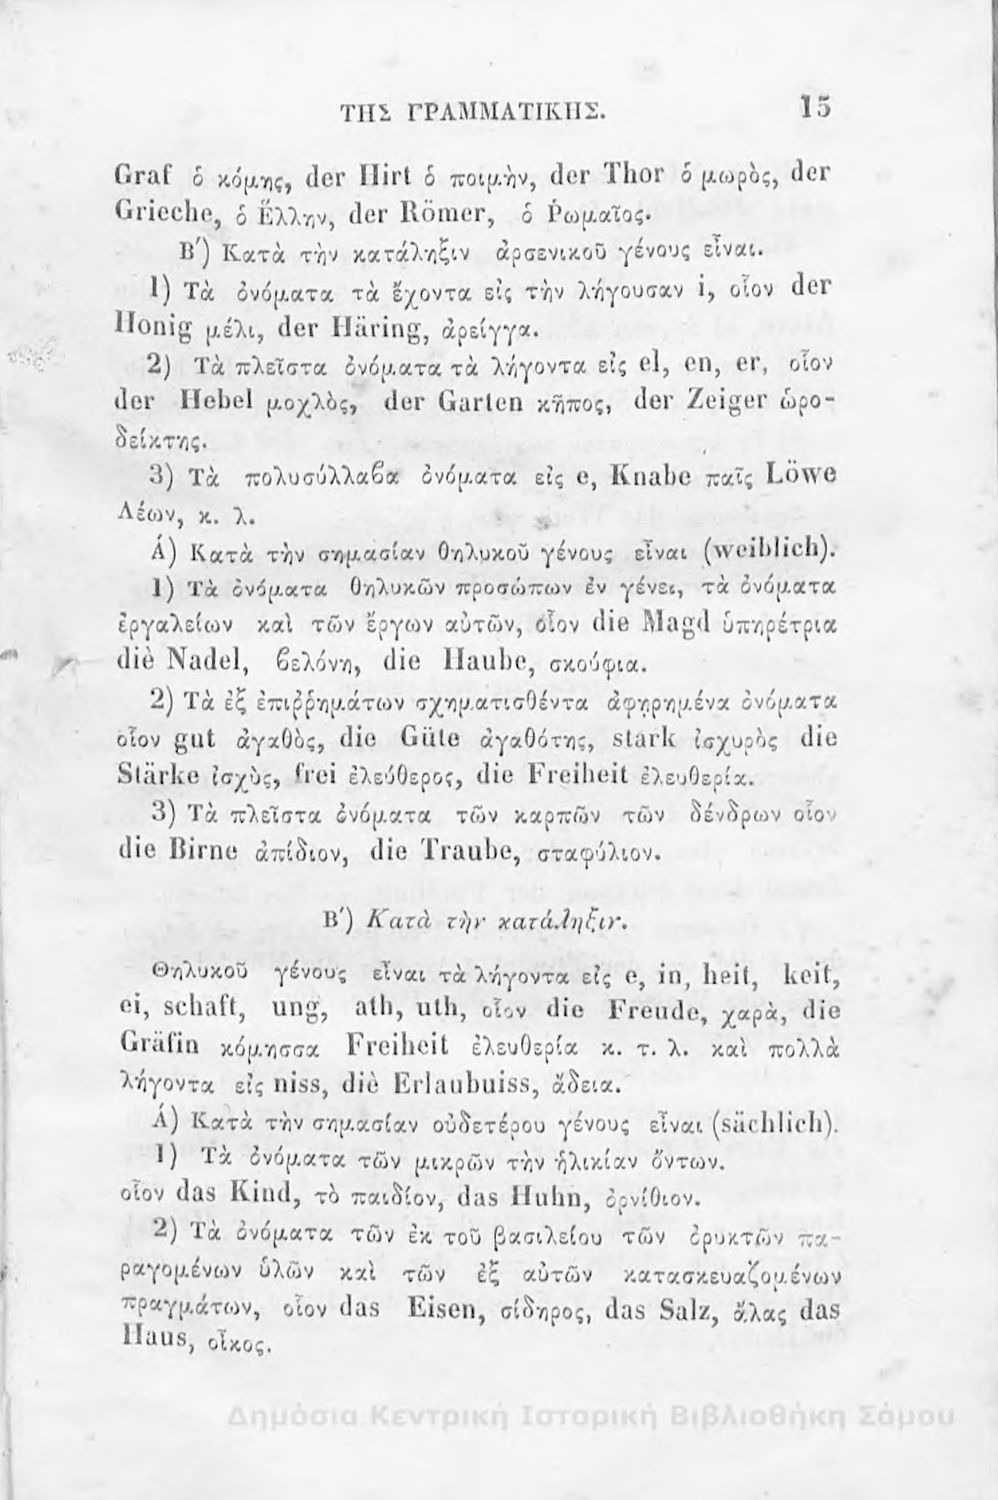 ΤΗΣ ΓΡΑΜΜΑΤΙΚΗΣ. 15
Graf ὁ κόμης, der Hirt ὁ ποιμὴν, der Thor ὁ μωρὸς, der
Grieche, ὁ Ἕλλην, der Römer, ὁ Ῥωμαῖος.
Β΄) Κατὰ τὴν κατάληξιν ἀρσενικοῦ γένους εἶναι.
1) Τὰ ὀνόματα τὰ ἔχοντα εἰς τὴν λήγουσαν i, οἷον der
Honig μέλι, der Häring, ἀρείγγα.
2) Τὰ πλεῖστα ὀνόματα τὰ λήγοντα εἰς el, en, er, οἷον
der Hebel μοχλὸς, der Garten κῆπος, der Zeiger ὡρο-
δείκτης.
3) Τὰ πολυσύλλαβα ὀνόματα εἰς e, Knabe παῖς Löwe
Λέων, κ. λ.
Ά) Κατὰ τὴν σημασίαν θηλυκοῦ γένους εἶναι (weiblich).
1) Τὰ ὀνόματα θηλυκῶν προσώπων ἐν γένει, τὰ ὀνόματα
ἐργαλείων καὶ τῶν ἔργων αὐτῶν, οἷον die Magd ὑπηρέτρια
diè Nadel, βελόνη, die Haube, σκούφια.
2) Τὰ ἐξ ἐπιῤῥημάτων σχηματισθέντα ἀφηρημένα ὀνόματα
οἷον gut ἀγαθὸς, die Güte ἀγαθότης, stark ἰσχυρὸς die
Stärke ἰσχὺς, frei ἐλεύθερος, die Freiheit ἐλευθερία.
3) Τὰ πλεῖστα ὀνόματα τῶν καρπῶν τῶν δένδρων οἷον
die Birne ἀπίδιον, die Traube, σταφύλιον.
Β΄) Κατὰ τὴν κατάληξιν.
Θηλυκοῦ γένους εἶναι τὰ λήγοντα εἰς e, in, heit, keit,
ei, schaft, ung, ath, uth, οἷον die Freude, χαρὰ, die
Gräfin κόμησσα Freiheit ἐλευθερία κ. τ. λ. καὶ πολλὰ
λήγοντα εἰς niss, diè Erlaubuiss, ἄδεια.
Ά) Κατὰ τὴν σημασίαν οὐδετέρου γένους εἶναι (sächlich).
1) Τὰ ὀνόματα τῶν μικρῶν τὴν ἡλικίαν ὄντων.
οἷον das Kind, τὸ παιδίον, das Huhn, ὀρνίθιον.
2) Τὰ ὀνόματα τῶν ἐκ τοῦ βασιλείου τῶν ὀρυκτῶν πα-
ραγομένων ὑλῶν καὶ τῶν ἐξ αὐτῶν κατασκευαζομένων
πραγμάτων, οἷον das Eisen, σίδηρος, das Salz, ἅλας das
Haus, οἶκος.
Δημόσια Κεντρική Ιστορική Βιβλιοθήκη Σάμου